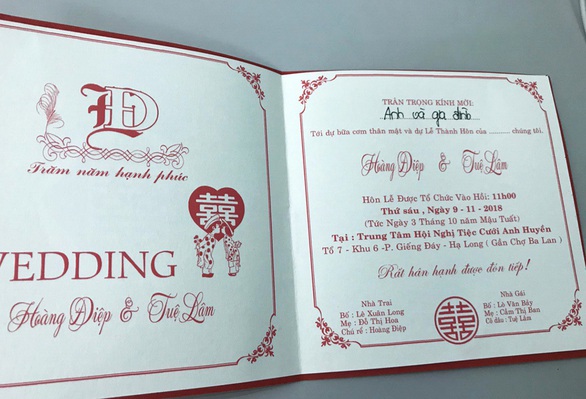 LĐ
Trăm năm hạnh phúc
囍
WEDDING
Hoàng Diệp & Tuệ Lâm
TRÂN TRỌNG KÍNH MỜI:
Anh và gia đình
Tới dự bữa cơm thân mật và dự Lễ Thành Hôn của ........ chúng tôi.
Hoàng Diệp & Tuệ Lâm
Hôn Lễ Được Tổ Chức Vào Hồi: 11h00
Thứ sáu , Ngày 9 - 11 - 2018
(Tức Ngày 3 Tháng 10 năm Mậu Tuất)
Tại : Trung Tâm Hội Nghị Tiệc Cưới Anh Huyền
Tổ 7 - Khu 6 -P. Giếng Đáy - Hạ Long ( Gần Chợ Ba Lan )
Rất hân hạnh được đón tiếp!
Nhà Trai
Bố : Lê Xuân Long
Mẹ : Đỗ Thị Hoa
Chú rể : Hoàng Điệp
囍
Nhà Gái
Bố : Lò Văn Bảy
Mẹ : Cầm Thị Ban
Cô dâu : Tuệ Lâm